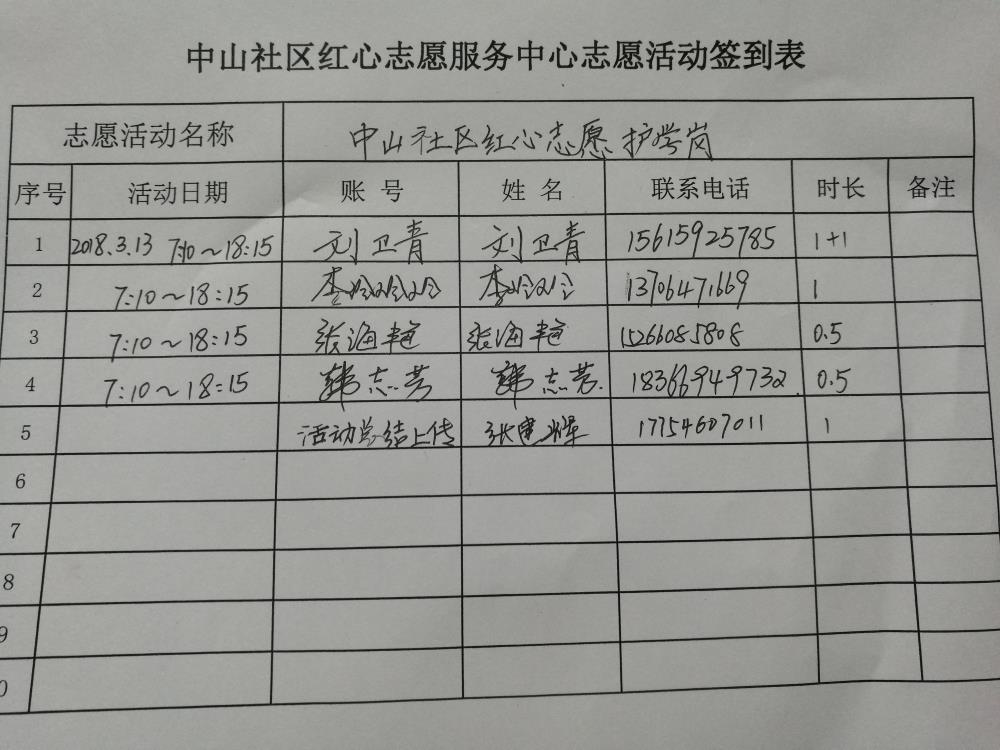 中山社区红心志愿服务中心志愿活动签到表
志愿活动名称 中山社区红心志愿护学岗
序号 活动日期 账号 姓名 联系电话 时长 备注
1 2018.3.13 7:10~18:15 刘卫青 刘卫青 15615925785 1+1
2 7:10~18:15 李 李 13706471669 1
3 7:10~18:15 张海 张海 15266085808 0.5
4 7:10~18:15 韩志芳 韩志芳 18366949732 0.5
5 活动总结上传 张建辉 17754607011 1
6
7
8
9
0